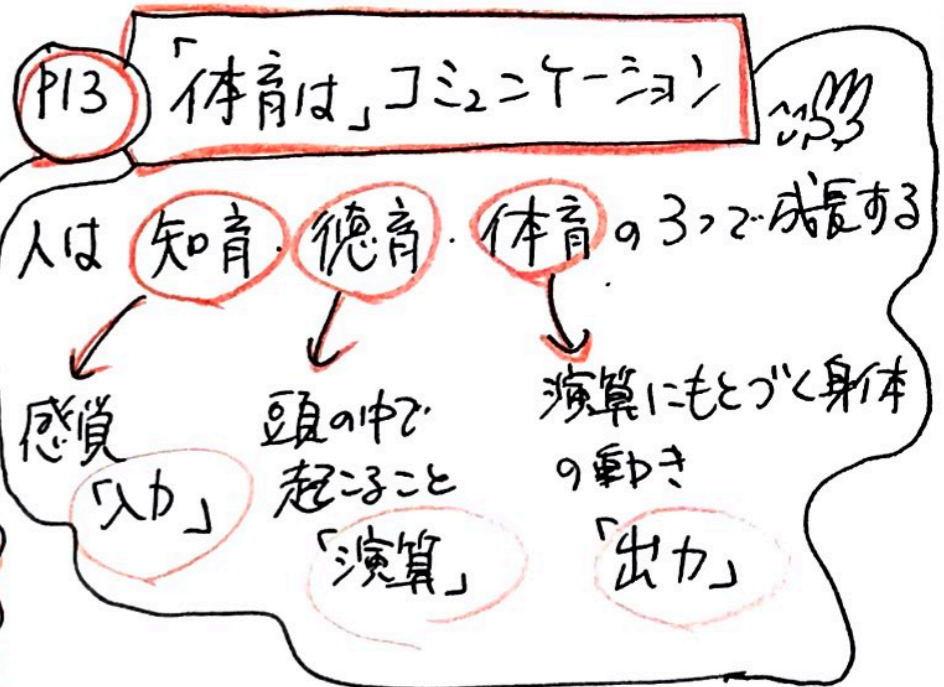 P13
「体育は」コミュニケーション
人は 知育・徳育・体育の3つで成長する
感覚
「入力」
頭の中で
起こること
「演算」
演算にもとづく身体
の動き
「出力」